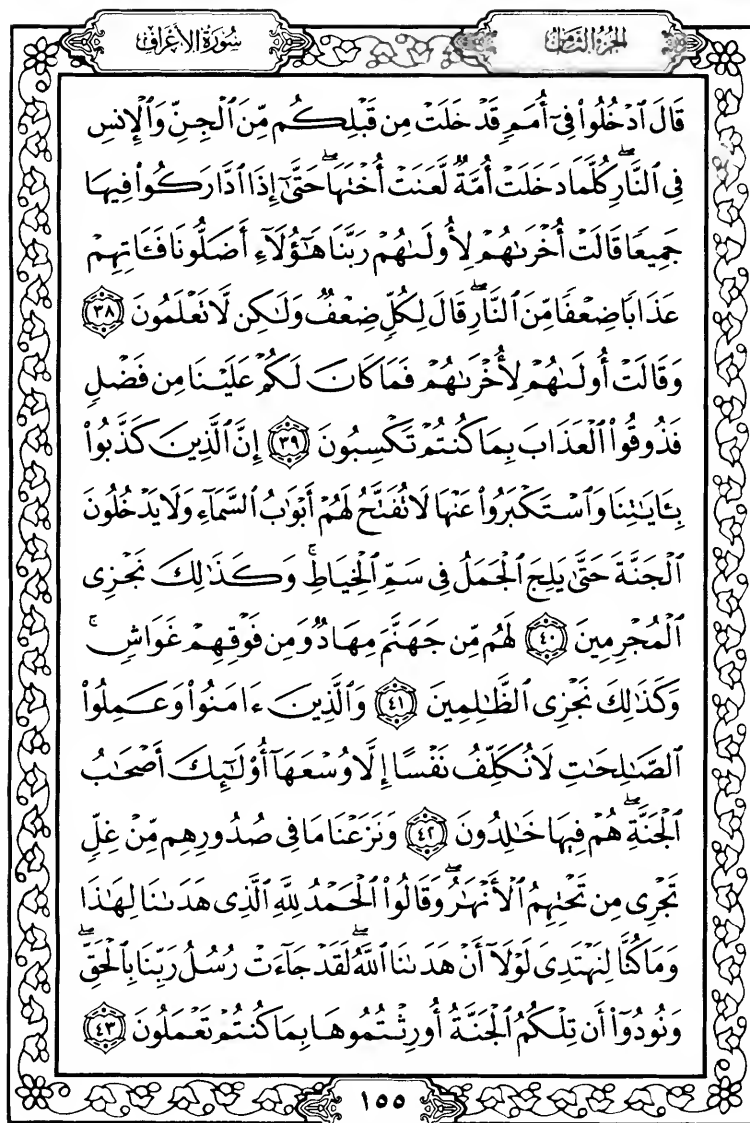 سُورَةُ الأَعْرَافِ
الجُزْءُ الثَّامِنُ
قَالَ ٱدْخُلُوا۟ فِىٓ أُمَمٍ قَدْ خَلَتْ مِن قَبْلِكُم مِّنَ ٱلْجِنِّ وَٱلْإِنسِ
فِى ٱلنَّارِۖ كُلَّمَا دَخَلَتْ أُمَّةٌ لَّعَنَتْ أُخْتَهَاۖ حَتَّىٰٓ إِذَا ٱدَّارَكُوا۟ فِيهَا
جَمِيعًا قَالَتْ أُخْرَىٰهُمْ لِأُولَىٰهُمْ رَبَّنَا هَٰٓؤُلَآءِ أَضَلُّونَا فَـَٔاتِهِمْ
عَذَابًا ضِعْفًا مِّنَ ٱلنَّارِۖ قَالَ لِكُلٍّ ضِعْفٌ وَلَٰكِن لَّا تَعْلَمُونَ ٣٨
وَقَالَتْ أُولَىٰهُمْ لِأُخْرَىٰهُمْ فَمَا كَانَ لَكُمْ عَلَيْنَا مِن فَضْلٍ
فَذُوقُوا۟ ٱلْعَذَابَ بِمَا كُنتُمْ تَكْسِبُونَ ٣٩ إِنَّ ٱلَّذِينَ كَذَّبُوا۟
بِـَٔايَٰتِنَا وَٱسْتَكْبَرُوا۟ عَنْهَا لَا تُفَتَّحُ لَهُمْ أَبْوَٰبُ ٱلسَّمَآءِ وَلَا يَدْخُلُونَ
ٱلْجَنَّةَ حَتَّىٰ يَلِجَ ٱلْجَمَلُ فِى سَمِّ ٱلْخِيَاطِۚ وَكَذَٰلِكَ نَجْزِى
ٱلْمُجْرِمِينَ ٤٠ لَهُم مِّن جَهَنَّمَ مِهَادٌ وَمِن فَوْقِهِمْ غَوَاشٍۚ
وَكَذَٰلِكَ نَجْزِى ٱلظَّٰلِمِينَ ٤١ وَٱلَّذِينَ ءَامَنُوا۟ وَعَمِلُوا۟
ٱلصَّٰلِحَٰتِ لَا نُكَلِّفُ نَفْسًا إِلَّا وُسْعَهَآ أُو۟لَٰٓئِكَ أَصْحَٰبُ
ٱلْجَنَّةِۖ هُمْ فِيهَا خَٰلِدُونَ ٤٢ وَنَزَعْنَا مَا فِى صُدُورِهِم مِّنْ غِلٍّ
تَجْرِى مِن تَحْتِهِمُ ٱلْأَنْهَٰرُۖ وَقَالُوا۟ ٱلْحَمْدُ لِلَّهِ ٱلَّذِى هَدَىٰنَا لِهَٰذَا
وَمَا كُنَّا لِنَهْتَدِىَ لَوْلَآ أَنْ هَدَىٰنَا ٱللَّهُۖ لَقَدْ جَآءَتْ رُسُلُ رَبِّنَا بِٱلْحَقِّۖ
وَنُودُوٓا۟ أَن تِلْكُمُ ٱلْجَنَّةُ أُورِثْتُمُوهَا بِمَا كُنتُمْ تَعْمَلُونَ ٤٣
١٥٥